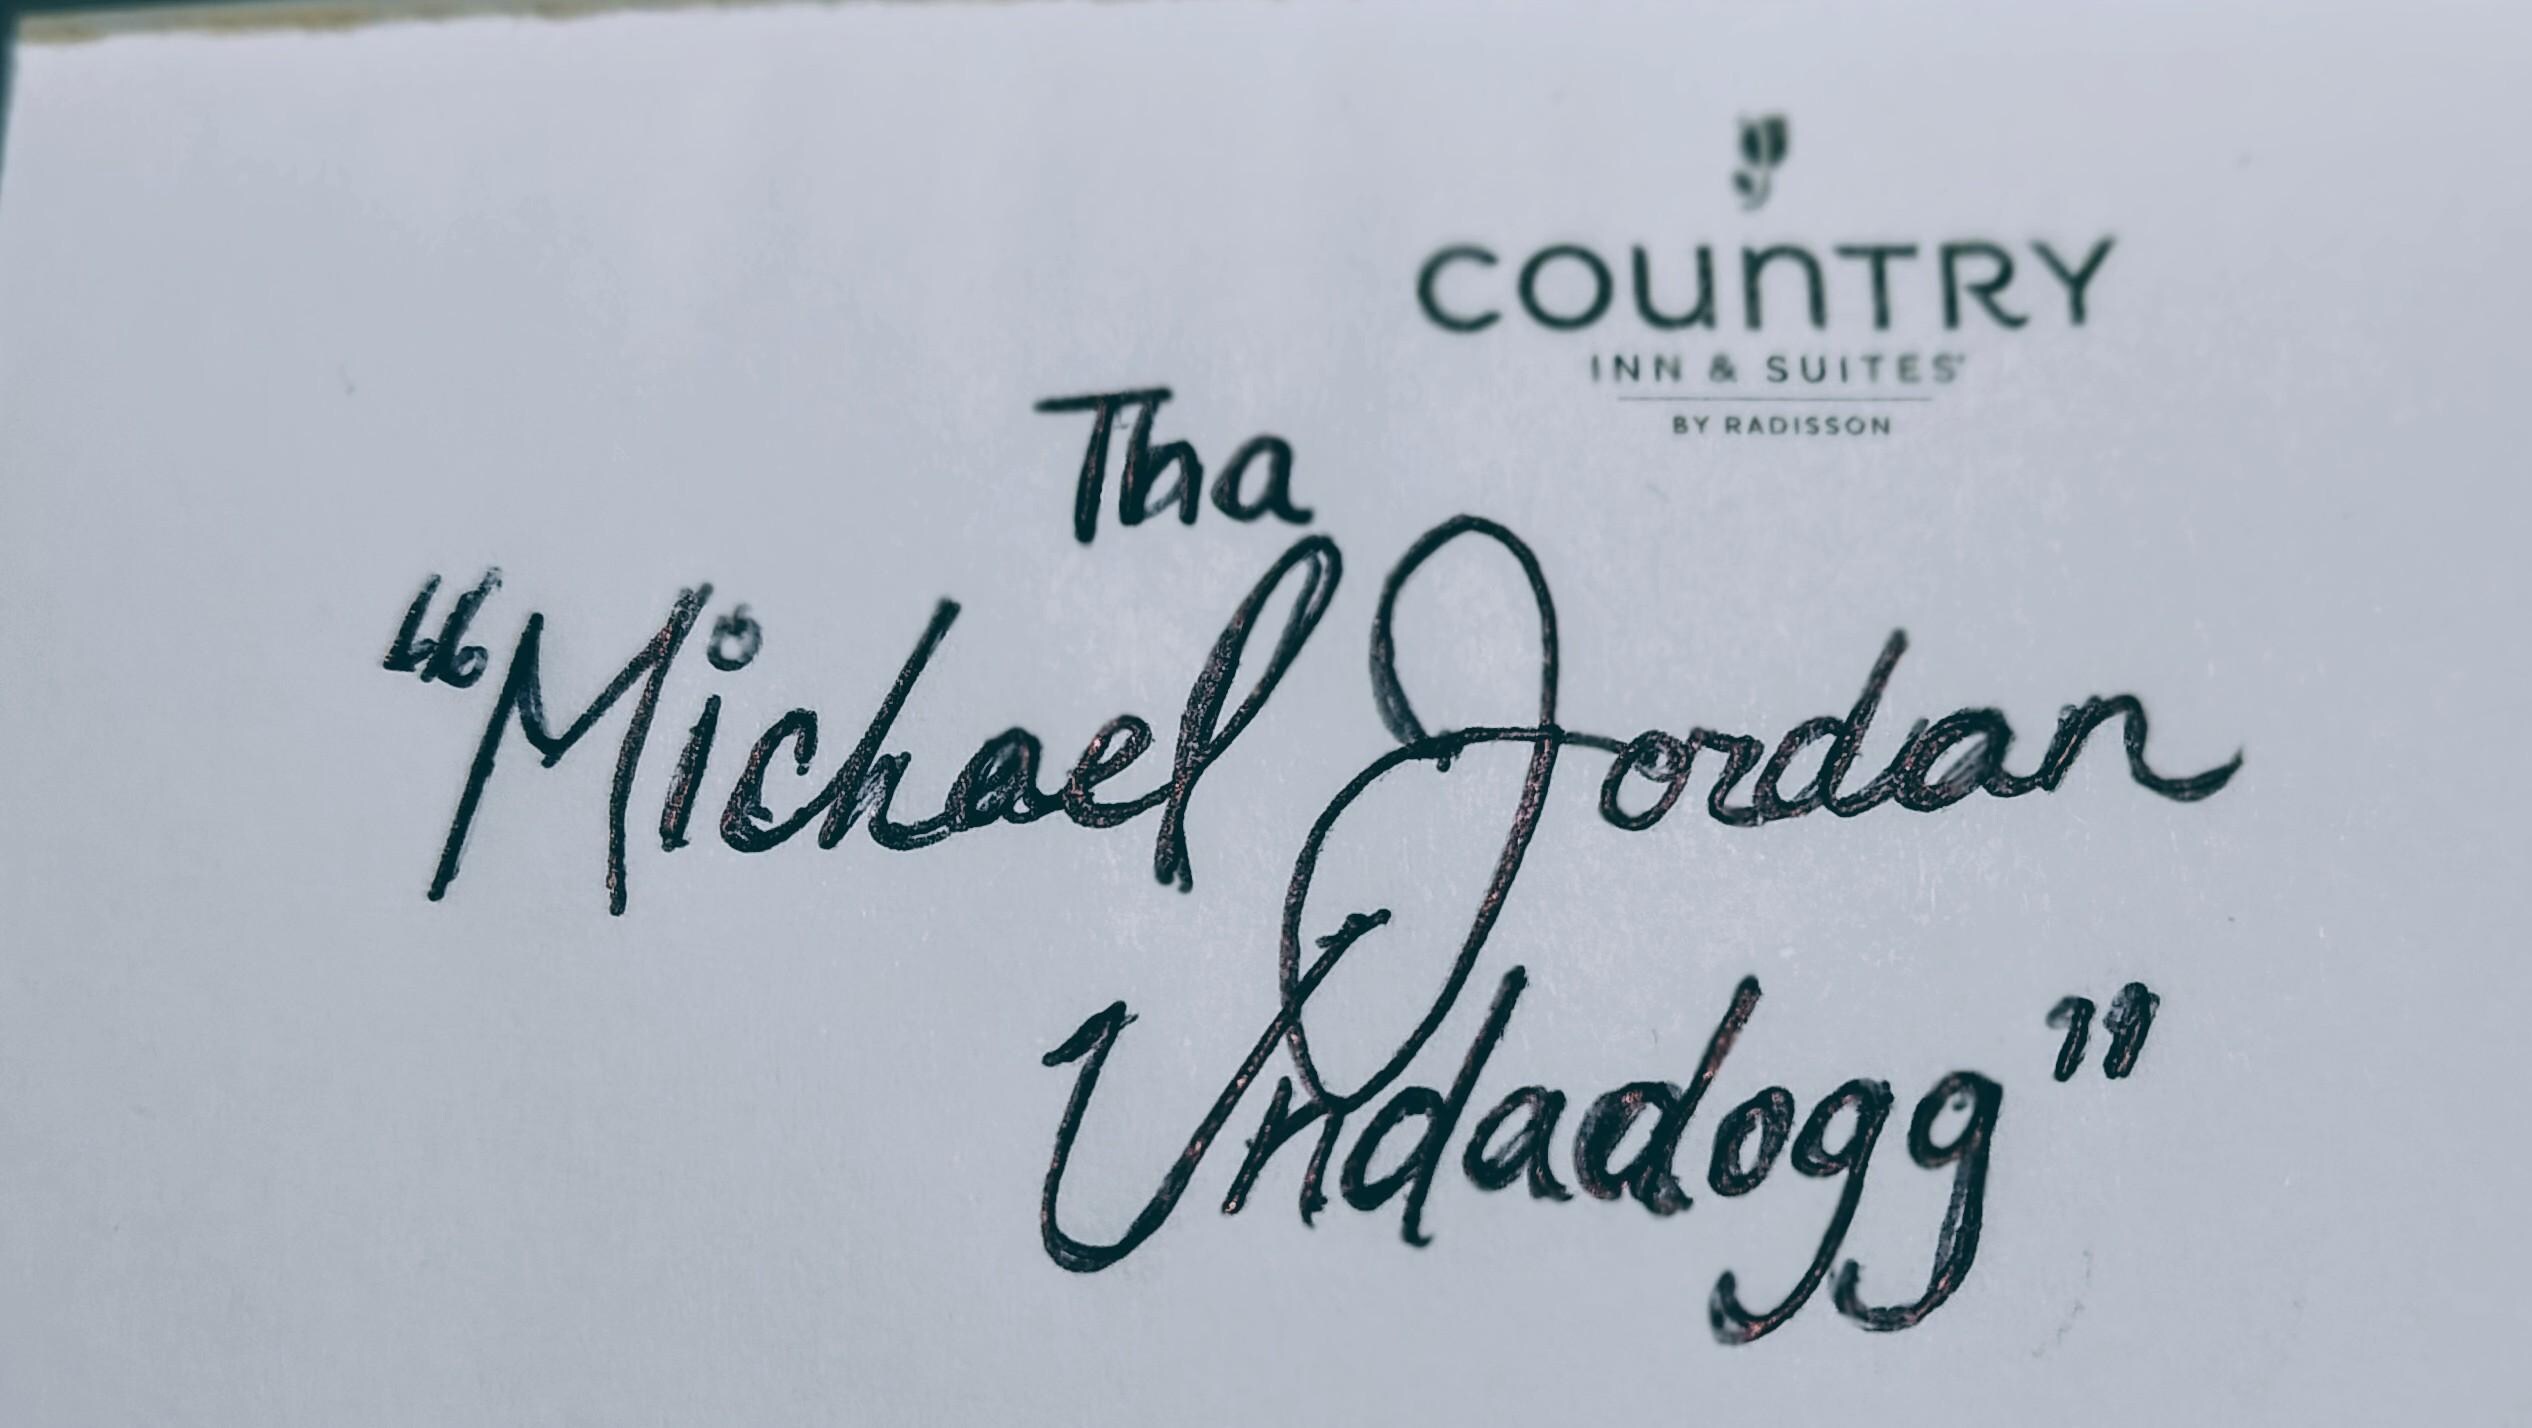 COUNTRY
INN & SUITES
BY RADISSON
Tha
“Michael Jordan
Undadogg”